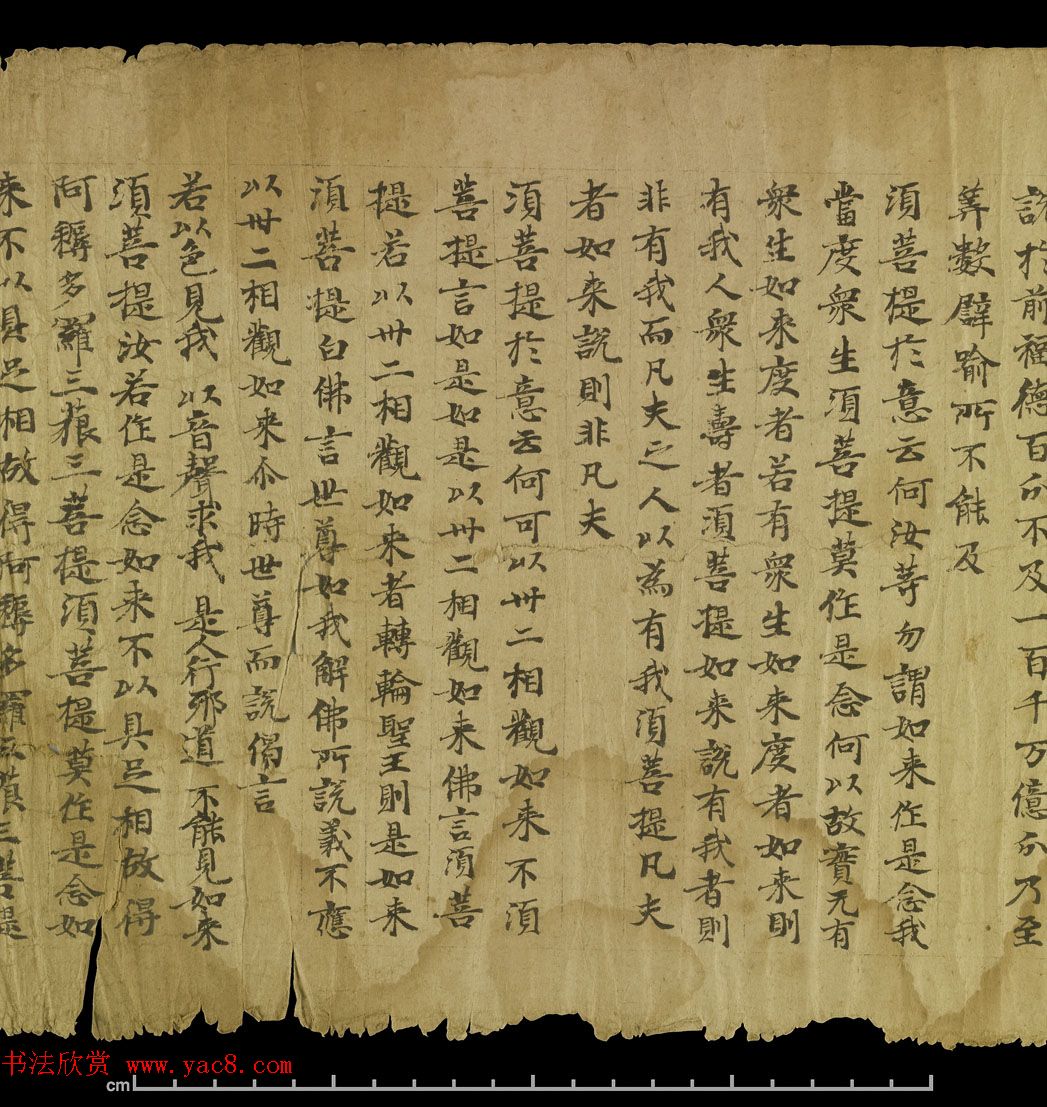 說於前福德百分不及一百千万億分乃至
筭數譬喻所不能及
須菩提於意云何汝等勿謂如来作是念我
當度衆生須菩提莫作是念何以故實无有
衆生如来度者若有衆生如来度者如来則
有我人衆生壽者須菩提如来說有我者則
非有我而凡夫之人以為有我須菩提凡夫
者如来說則非凡夫
須菩提於意云何可以卅二相觀如来不須
菩提言如是如是以卅二相觀如来佛言須菩
提若以卅二相觀如来者轉輪聖王則是如来
須菩提白佛言世尊如我解佛所說義不應
以卅二相觀如来尒時世尊而說偈言
若以色見我 以音聲求我 是人行邪道 不能見如来
須菩提汝若作是念如来不以具足相故得
阿耨多羅三藐三菩提須菩提莫作是念如
来不以具足相故得阿耨多羅三藐三菩提
书法欣赏 www.yac8.com
cm